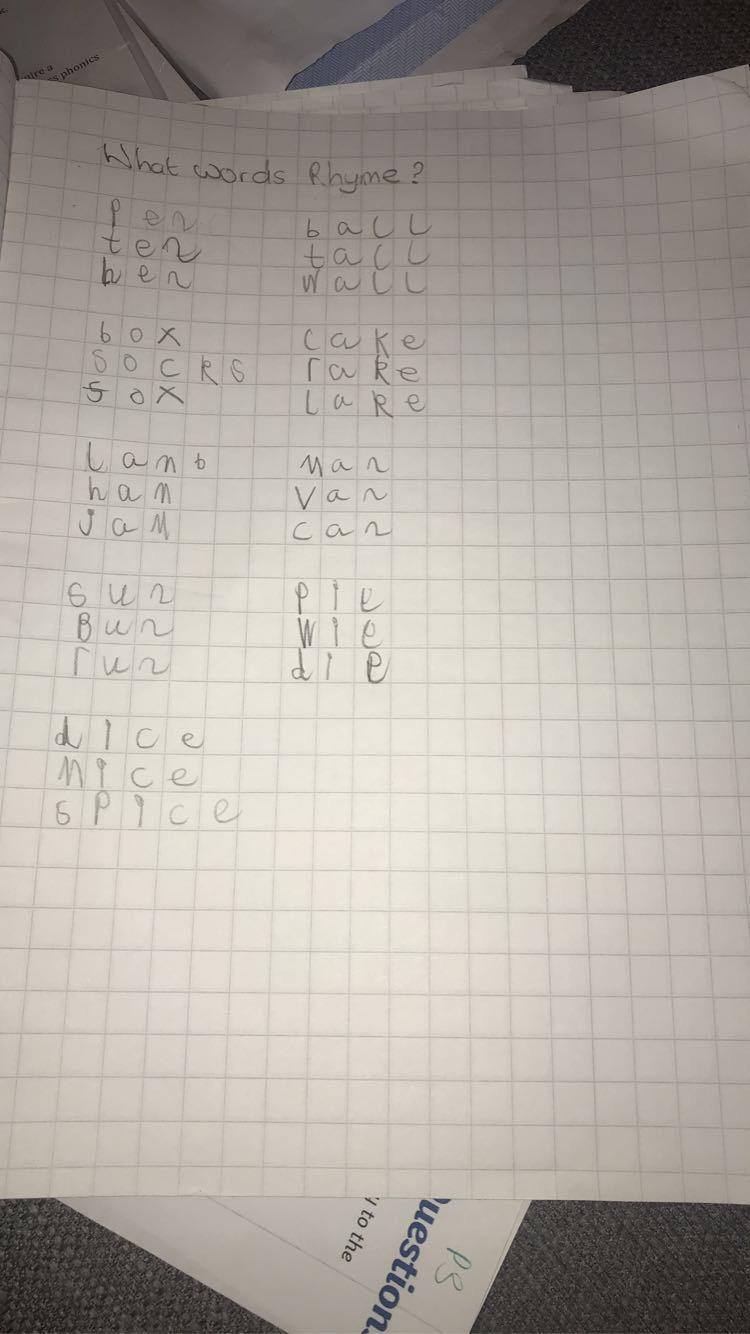 uire a
s phonics
What words Rhyme?
pen ball
ten tall
hen wall
box cake
socks rake
sox lake
lamb man
ham van
jam can
sun pie
Bun wie
run die
dice
nice
spice
y to the
uestion
PS